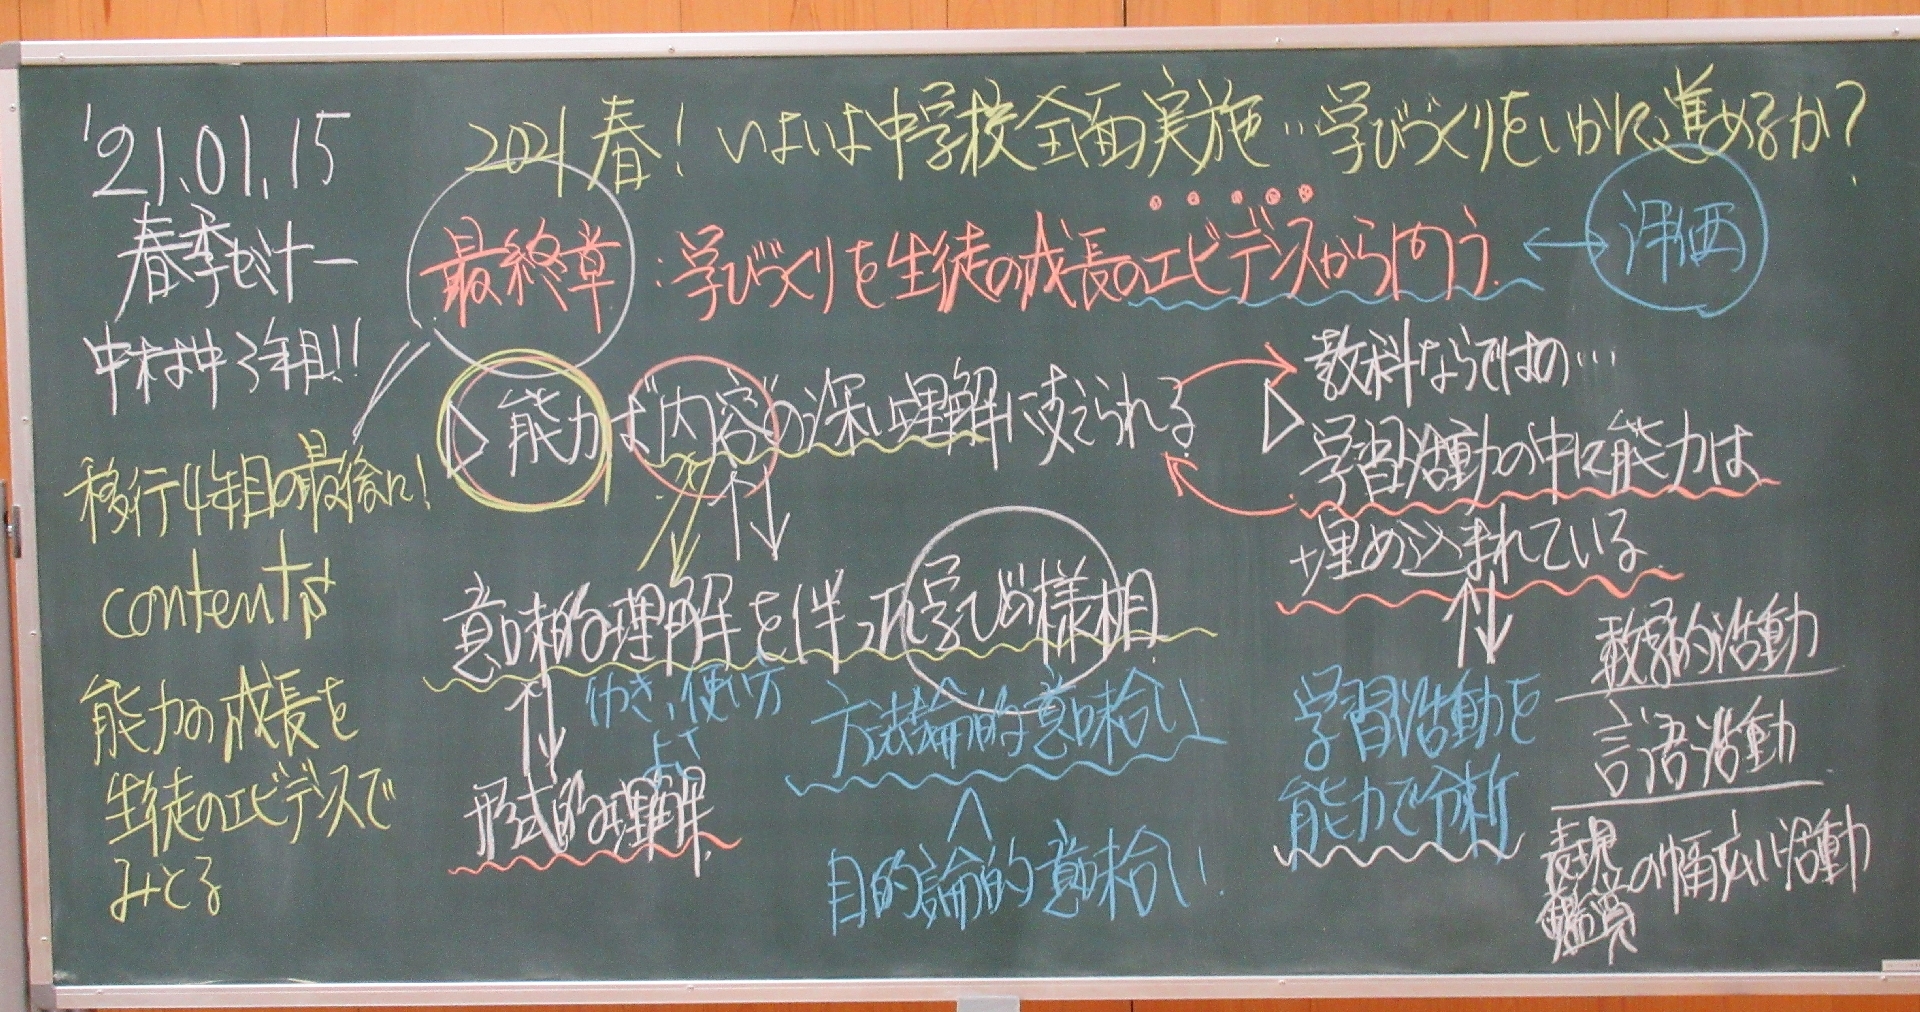 '21.01.15
春季セミナー
中村中3年目!!
移行4年目の最後に!
contentは
能力の成長を
生徒のエビデンスで
みとる
2021春!いよいよ中学校全面実施…学びづくりをいかに進めるか?
最終章:学びづくりを生徒の成長のエビデンスから問う.
評価
能力は"内容"の深い理解に支えられる
意味的理解を伴った学びの様相
働き、使い方
よさ
形式的理解
方法論的意味合い
目的論的意味合い!
教科ならではの…
学習活動の中に能力は
埋め込まれている
学習活動を
能力で分析
数学的活動
言語活動
表現
鑑賞
の幅広い活動